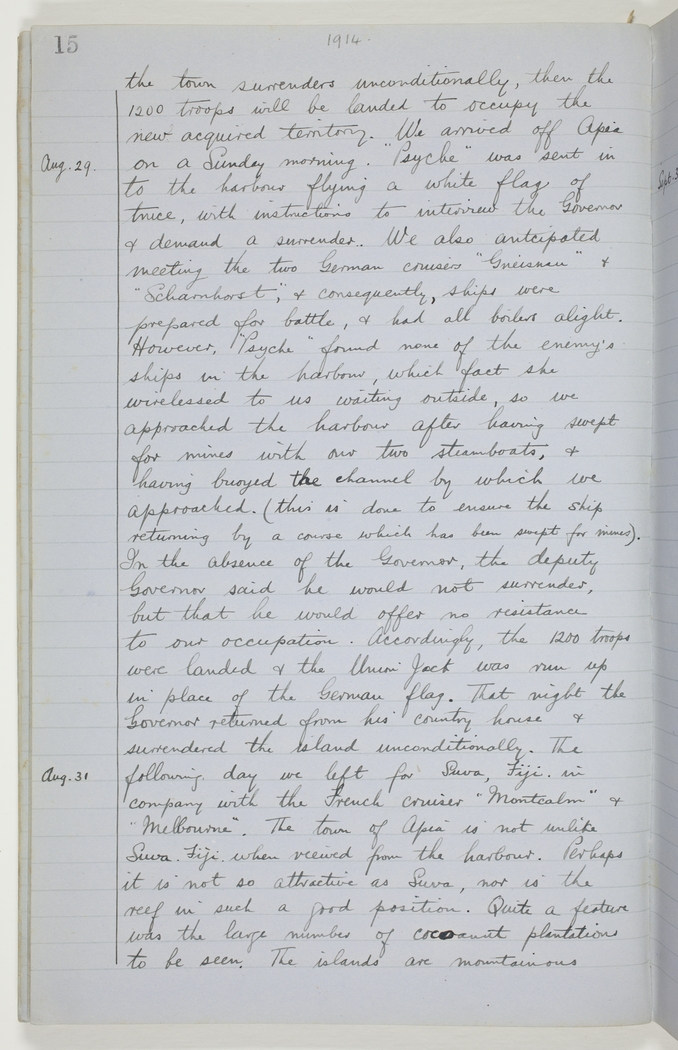 15
1914.
the town surrenders unconditionally, then the
1200 troops will be landed to occupy the
new acquired territory. We arrived off Apia
Aug. 29. on a Sunday morning. "Psyche" was sent in
to the harbour flying a white flag of
truce, with instructions to interview the Governor
& demand a surrender. We also anticipated
meeting the two German cruisers "Gneisnau" &
"Scharnhorst", & consequently, ships were
prepared for battle, & had all boilers alight.
However, "Psyche" found none of the enemy's
ships in the harbour, which fact she
wirelessed to us waiting outside, so we
approached the harbour after having swept
for mines with our two steamboats, &
having buoyed the channel by which we
approached. (this is done to ensure the ship
returning by a course which has been swept for mines).
In the absence of the Governor, the deputy
Governor said he would not surrender,
but that he would offer no resistance
to our occupation. Accordingly, the 1200 troops
were landed & the Union Jack was run up
in place of the German flag. That night the
Governor returned from his country house &
surrendered the island unconditionally. The
Aug. 31 following day we left for Suva, Fiji. in
company with the French cruiser "Montcalm" &
"Melbourne". The town of Apia is not unlike
Suva. Fiji when veiwed from the harbour. Perhaps
it is not so attractive as Suva, nor is the
reef in such a good position. Quite a feature
was the large number of cocoanut plantations
to be seen. The islands are mountainous
Sept. 3